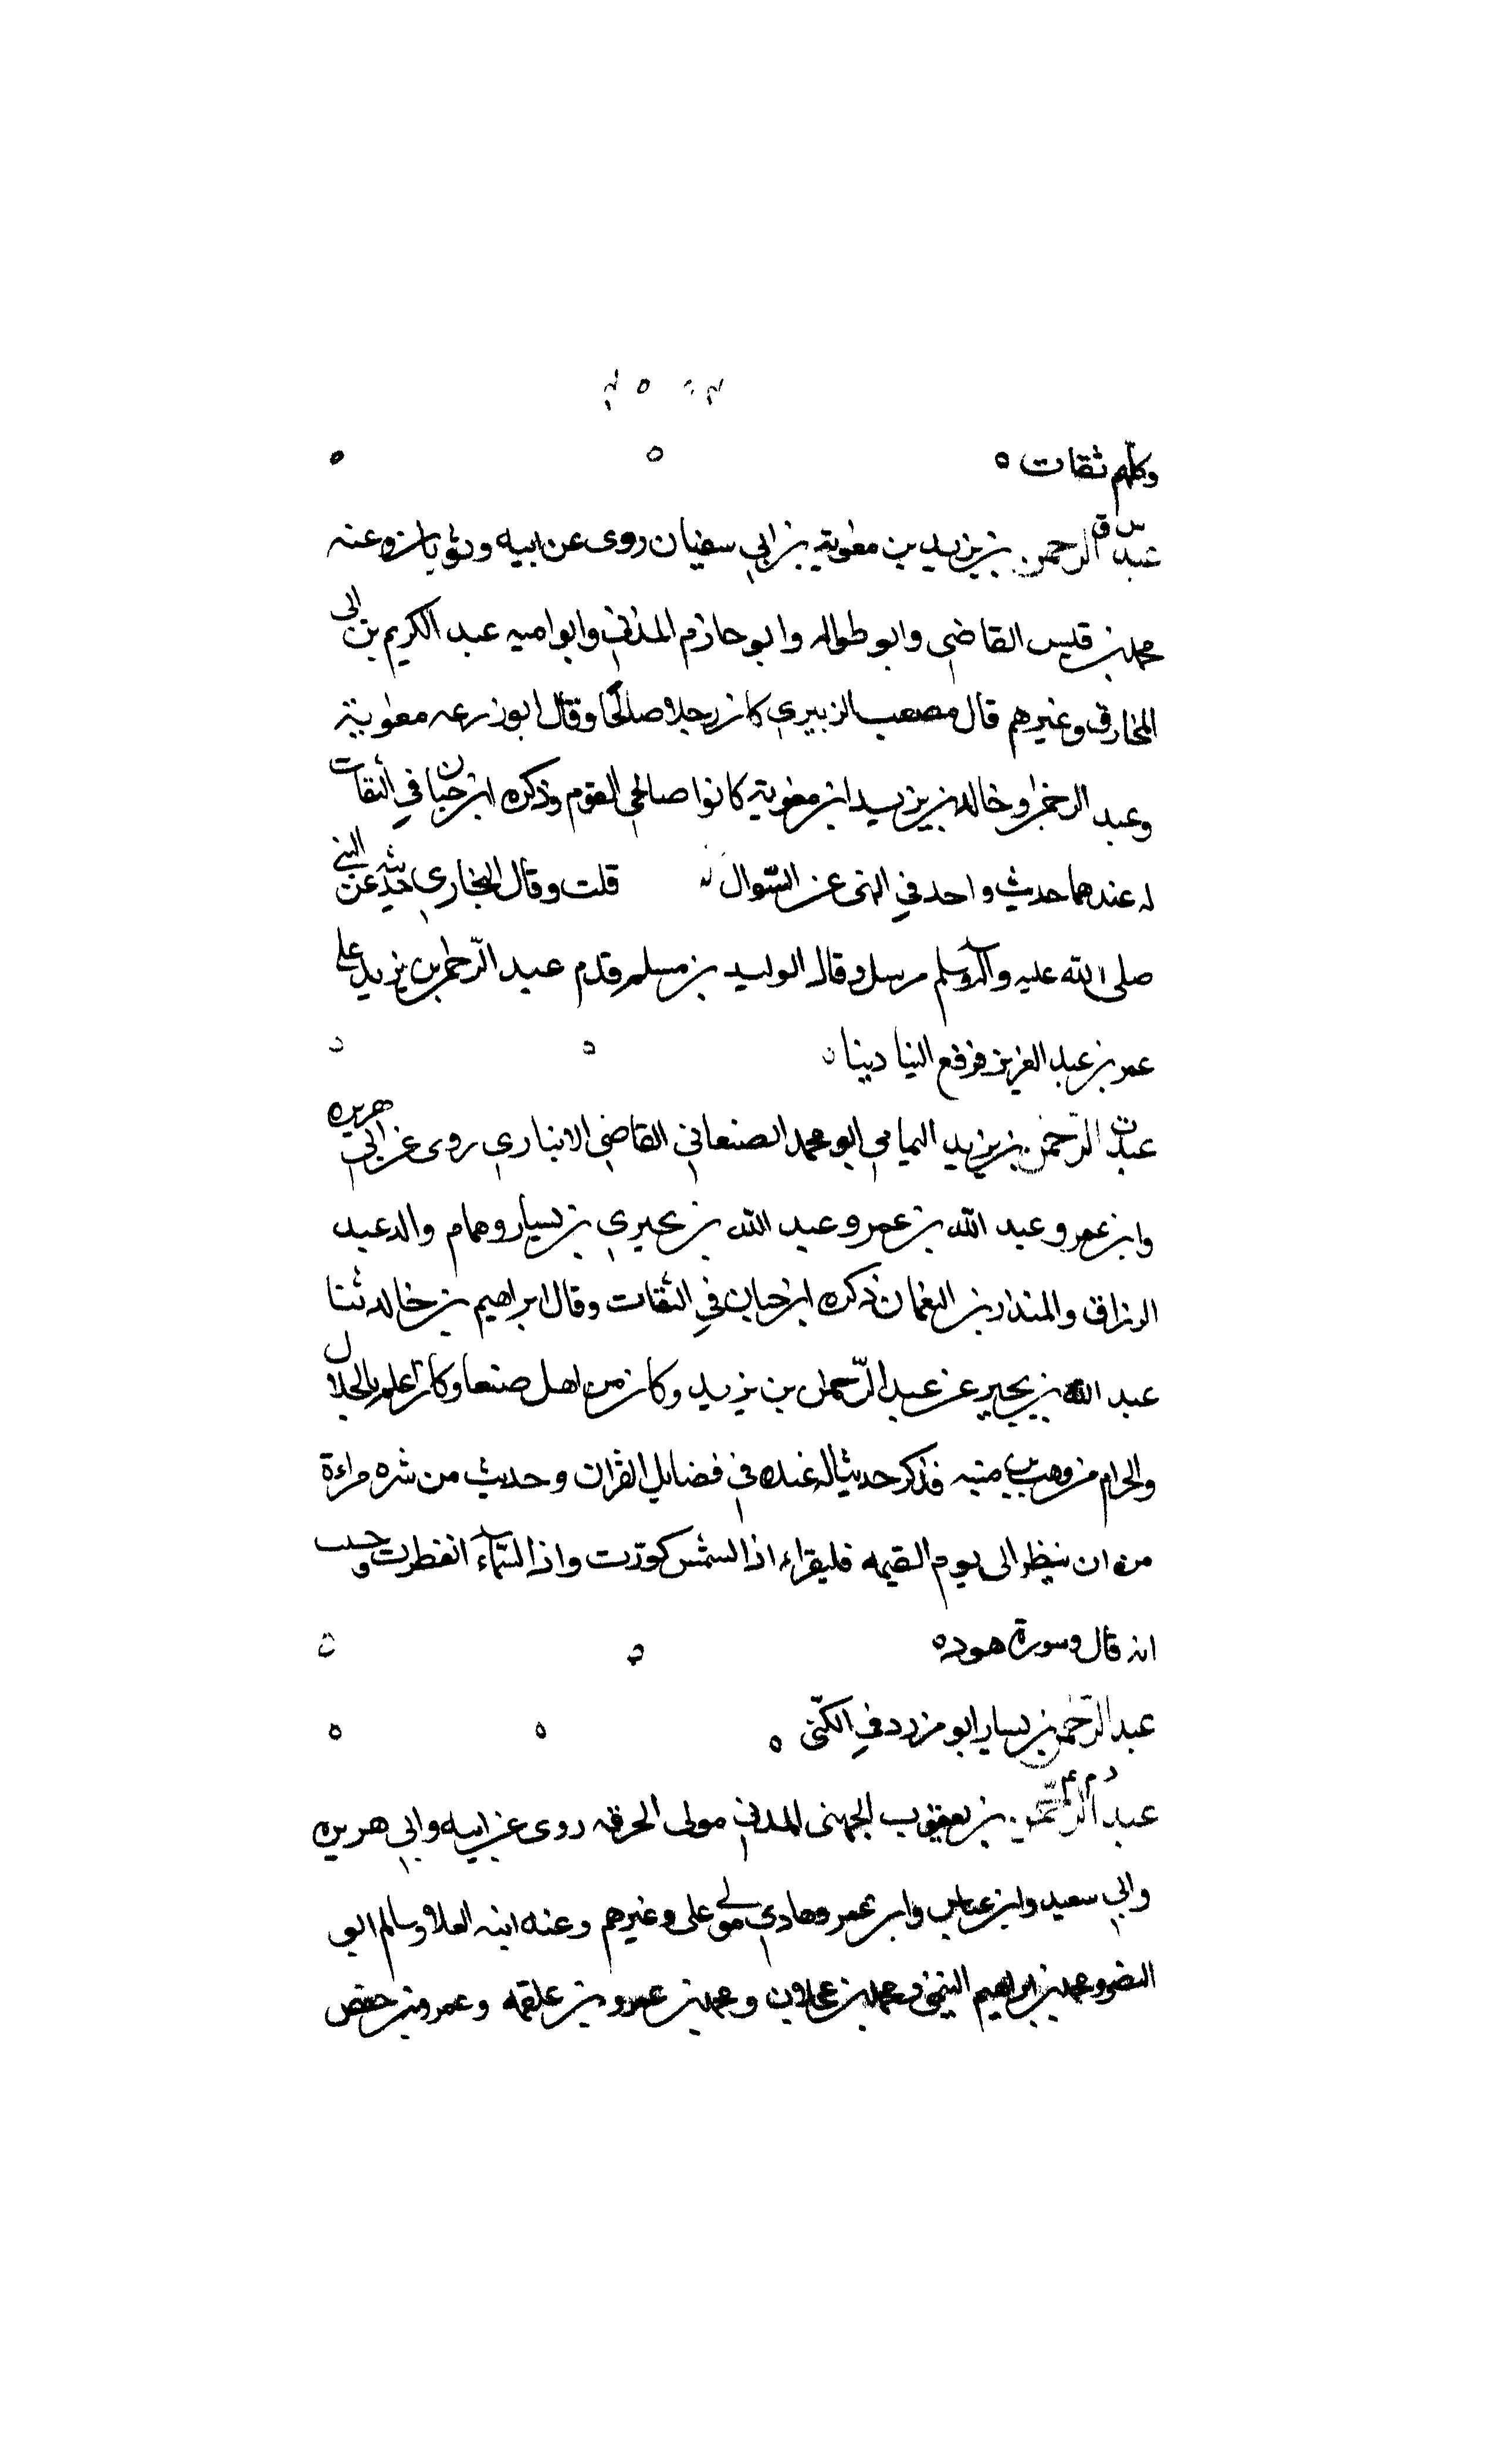 وكلهم ثقات
س ق
عبد الرحمن بن يزيد بن معوية بن ابي سفيان روى عن ابيه وثوبان وعنه
محمد بن قيس القاضي وابو طواله وابو حازم المدني وابو اميه عبد الكريم بن ابي
المخارق وغيرهم قال مصعب الزبيري كان رجلا صالحا وقال ابو زرعه معوية
وعبد الرحمن وخالد بن يزيد ابن معوية كانوا صالحي القوم وذكره ابن حبان في الثقات
له عندهما حديث واحد في النهي عن السوال قلت وقال البخاري حديثه عن النبي
صلى الله عليه وآله وسلم مرسل وقال الوليد بن مسلم قدم عبد الرحمن بن يزيد على
عمر بن عبد العزيز فرفع الينا دينا
ت
عبد الرحمن بن يزيد اليمامي ابو محمد الصنعاني القاضي الانباري روى عن ابي هريره
وابن عمر وعبد الله بن عمرو عبد الله بن بحيري بن يسار وهمام والد عبد
الرزاق والمنذر بن النعمان ذكره ابن حبان في الثقات وقال ابراهيم بن خالد ثنا
عبد الله بن بحير عن عبد الرحمن بن يزيد وكان من اهل صنعا وكان اعلم بالحلال
والحرام من وهب بن منبه فذكر حديثا له عنده في فضايل القران وحديث من سره
من ان ينظر الى يوم القيمه فليقراء اذا الشمس كورت واذا السمآء انفطرت وحسب
انه قال وسورة هود
عبد الرحمن بن يسار ابو مزرد في الكنى
عبد الرحمن بن يعقوب الجهني المدني مولى الحرقه روى عن ابيه وابي هريره
وابي سعيد وابن عباس وابن عمر وهادي مولى علي وغيرهم وعنه ابنه العلا وسالم ابو
النضر ومحمد بن ابراهيم التيمي ومحمد بن عجلان ومحمد بن عمرو بن علقمه وعمرو بن حفص